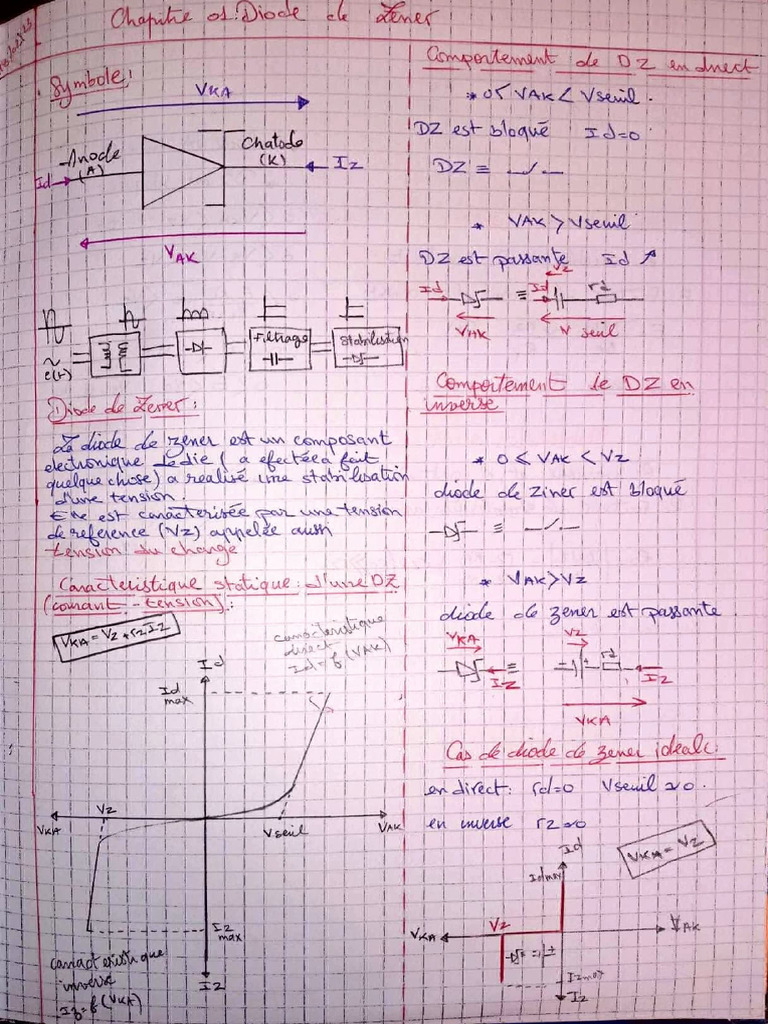 Chapitre 01: Diode de Zener
Symbole:
VKA
Anode
(A)
Chatode
(K)
Id
Iz
VAK
e(t)
filtrage
stabilisation
Diode de Zener:
La diode de zener est un composant
electronique dedie ( a efectéea fait
quelque chose) a realisé une stabilisation
d'une tension.
Elle est caracterisée par une tension
de reference (Vz) appelée aussi
tension du change
Caracteristique statique d'une DZ
(courant-tension):
VKA = Vz + rz Iz
caracteristique
direct
Id = f(VAK)
Id
Id
max
Vz
VKA
Vseuil
VAK
Iz
max
Iz
caracteristique
inverse
Iz = f(VKA)
Comportement de DZ en direct
* 0< VAK < Vseuil.
DZ est bloqué Id=0
DZ ≡
* VAK > Vseuil
DZ est passante Id ↗
Id
≡
Id
Vz
rd
VAK
V seuil
Comportement de DZ en
inverse
* 0 < VAK < Vz
diode de ziner est bloqué
≡
* VAK>Vz
diode de zener est passante.
VKA
≡
Iz
Vz
rd
Iz
VKA
Cas de diode de zener ideale:
en direct: rd=0 Vseuil ≈0.
en inverse rz≈0
VKA = Vz
Id
Idmax
Vz
VKA
VAK
Izmax
Iz